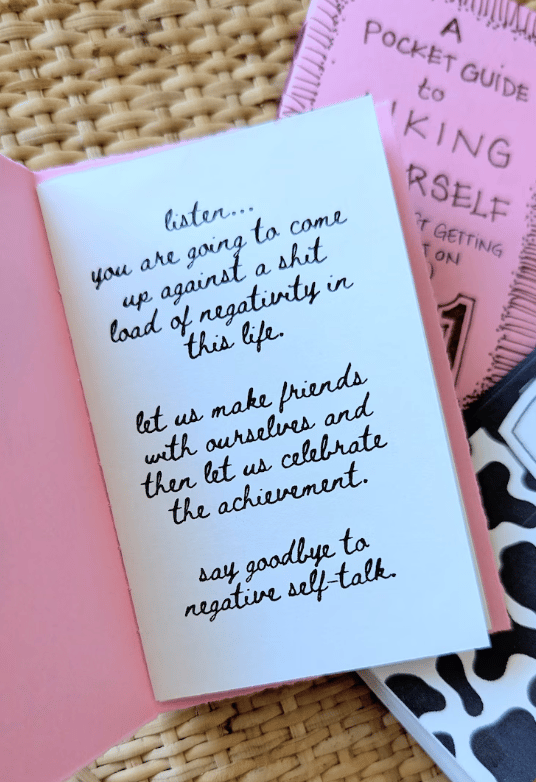 listen...
you are going to come
up against a shit
load of negativity in
this life.
let us make friends
with ourselves and
then let us celebrate
the achievement.
say goodbye to
negative self-talk.
A
POCKET GUIDE
to
GETTING
ON
1